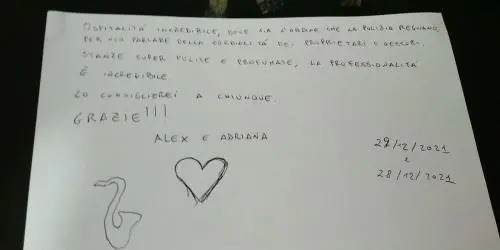 OSPITALITÀ INCREDIBILE, DOVE SIA L'ORDINE CHE LA PULIZIA REGNANO,
PER NON PARLARE DELLA CORDIALITÀ DEI PROPRIETARI E GESTORI.
STANZE SUPER PULITE E PROFUMATE, LA PROFESSIONALITÀ
È INCREDIBILE.
LO CONSIGLIEREI A CHIUNQUE.
GRAZIE!!!
ALEX E ADRIANA
27/12/2021
E
28/12/2021